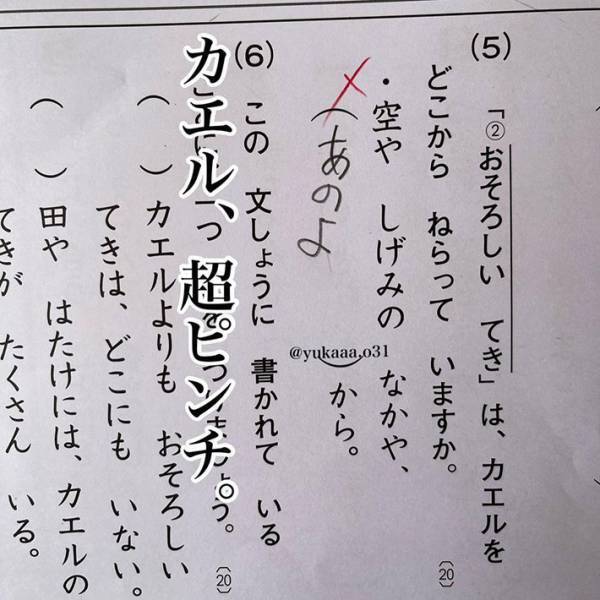 (5) 「②おそろしい てき」は、カエルを
どこから ねらって いますか。
(20)
・空や しげみの なかや、
(あのよ)から。
@yukaaa,o31
(6) この 文しょうに 書かれて いる
う。
(20)
カエル、超ピンチ。
( ) カエルよりも おそろしい
てきは、どこにも いない。
( ) 田や はたけには、カエルの
てきが たくさん いる。